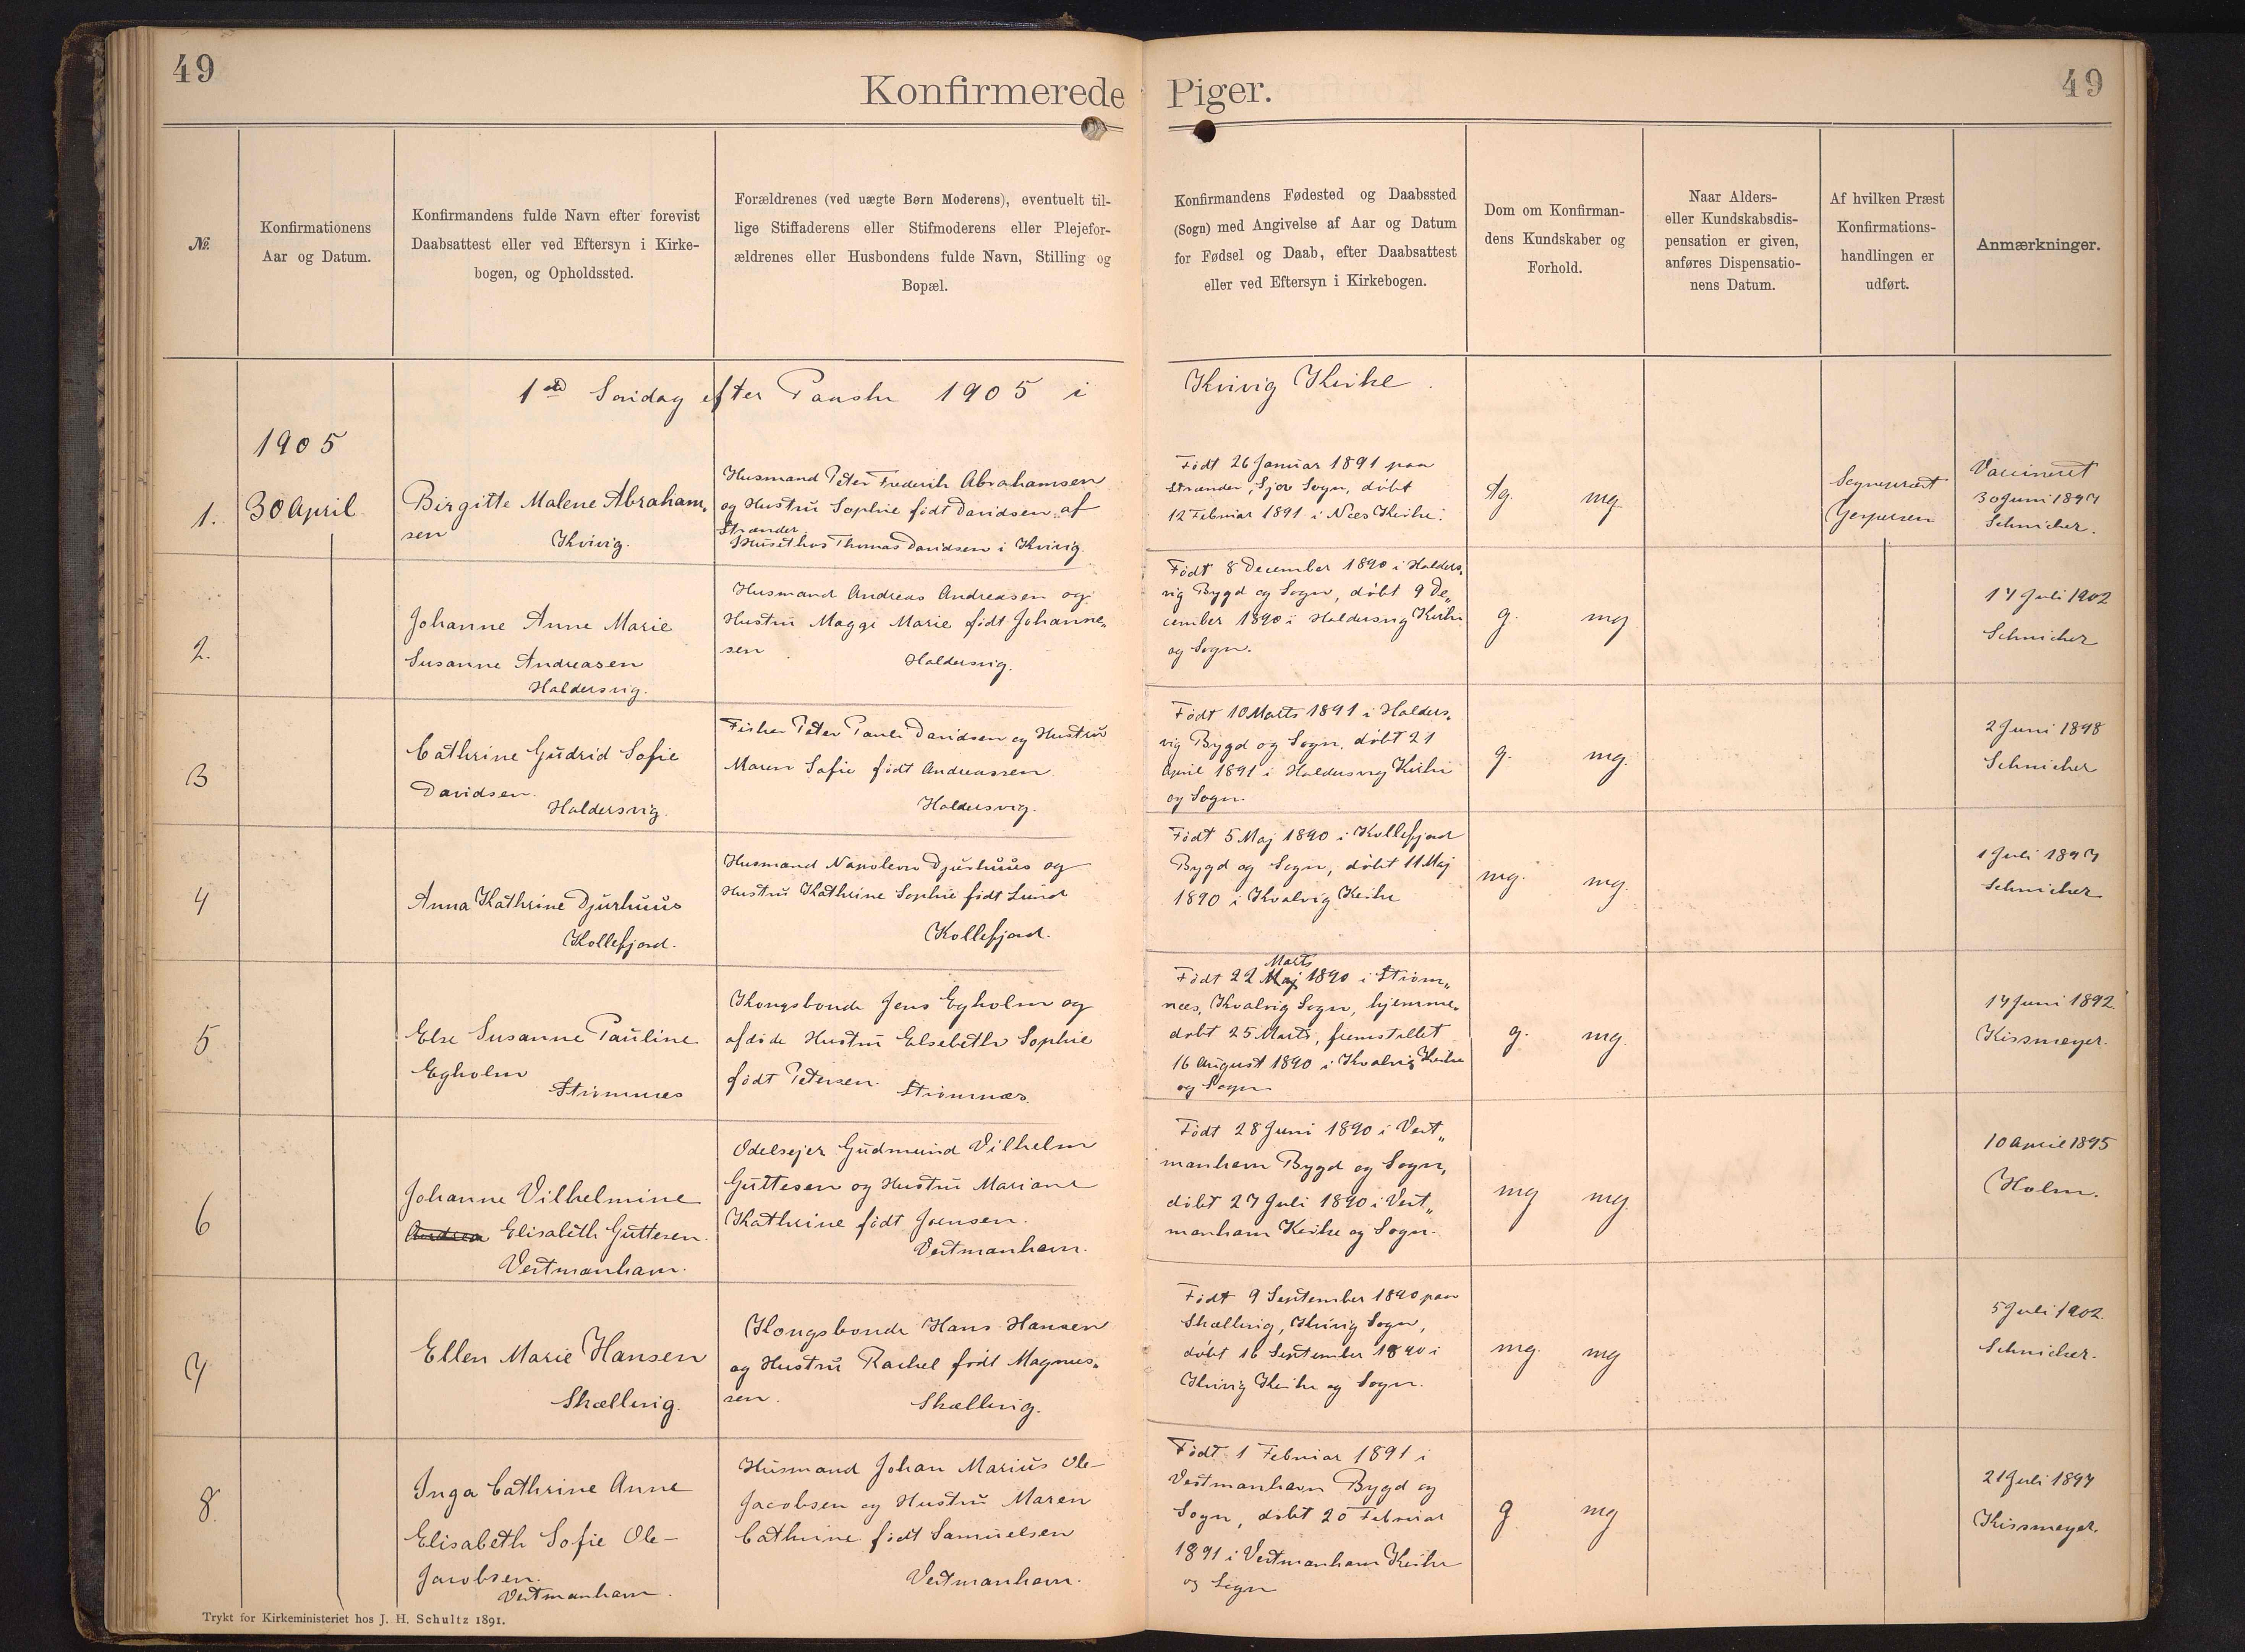 49
Konfirmerede Piger.
49
№
Konfirmationens
Aar og Datum.
Konfirmandens fulde Navn efter forevist
Daabsattest eller ved Eftersyn i Kirke-
bogen, og Opholdssted.
Forældrenes (ved uægte Børn Moderens), eventuelt til-
lige Stiffaderens eller Stifmoderens eller Plejefor-
ældrenes eller Husbondens fulde Navn, Stilling og
Bopæl.
Konfirmandens Fødested og Daabssted
(Sogn) med Angivelse af Aar og Datum
for Fødsel og Daab, efter Daabsattest
eller ved Eftersyn i Kirkebogen.
Dom om Konfirman-
dens Kundskaber og
Forhold.
Naar Alders-
eller Kundskabsdis-
pensation er given,
anføres Dispensatio-
nens Datum.
Af hvilken Præst
Konfirmations-
handlingen er
udført.
Anmærkninger.
1ste Søndag efter Paaske 1905 i Kvivig Kirke.
1905
1.
30 April
Birgitte Malene Abraham„
sen
Kvivig.
Husmand Peter Frederik Abrahamsen
og Hustru Sophie født Davidsen af
Strænder
Huset hos Thomas Davidsen i Kvivig.
Født 26 Januar 1891 paa
Strænder, Sjov Sogn, døbt
12 Februar 1891 i Næs Kirke.
tg. mg
Sognepræst
Jespersen
Vaccineret
30 Juni 1897
Schnicker.
2.
Johanne Anne Marie
Susanne Andreasen
Haldersvig.
Husmand Andreas Andreasen og
Hustru Magge Marie født Johanne„
sen
Haldersvig.
Født 8 December 1890 i Halders„
vig Bygd og Sogn, døbt 9 De„
cember 1890 i Haldersvig Kirke
og Sogn.
g. mg
17 Juli 1902
Schnicker
3
Cathrine Gudrid Sofie
Davidsen.
Haldersvig.
Fisker Peter Pauli Davidsen og Hustru
Maren Sofie født Andreassen.
Haldersvig.
Født 10 Marts 1891 i Halders„
vig Bygd og Sogn, døbt 21
April 1891 i Haldersvig Kirke
og Sogn.
g. mg.
2 Juni 1898
Schnicker
4
Anna Kathrine Djurhuus
Kollefjord.
Husmand Napoleon Djurhuus og
Hustru Kathrine Sophie født Lund
Kollefjord.
Født 5 Maj 1890 i Kollefjord
Bygd og Sogn, døbt 11 Maj
1890 i Kvalvig Kirke
mg. mg.
1 Juli 1897
Schnicker
5
Else Susanne Pauline
Egholm
Strømnæs
Kongsbonde Jens Egholm og
afdøde Hustru Elsebeth Sophie
født Petersen.
Strømnæs.
Marts
Født 22 Maj 1890 i Strøm„
næs, Kvalvig Sogn, hjemme„
døbt 25 Marts, fremstillet
16 August 1890 i Kvalvig Kirke
og Sogn
g. mg.
17 Juni 1892.
Kissmeyer.
6
Johanne Vilhelmine
Andrea Elisabeth Guttesen.
Vestmanhavn.
Odelsejer Gudmund Vilhelm
Guttesen og Hustru Mariane
Kathrine født Joensen.
Vestmanhavn.
Født 28 Juni 1890 i Vest„
manhavn Bygd og Sogn,
døbt 27 Juli 1890 i Vest„
manhavn Kirke og Sogn.
mg mg.
10 April 1895
Holm.
7
Ellen Marie Hansen
Skælling.
Kongsbonde Hans Hansen
og Hustru Rachel født Magnus„
sen.
Skælling.
Født 9 September 1890 paa
Skælling, Kvivig Sogn,
døbt 16 September 1890 i
Kvivig Kirke og Sogn.
mg. mg
5 Juli 1902.
Schnicker.
8.
Inga Cathrine Anne
Elisabeth Sofie Ole-
Jacobsen.
Vestmanhavn.
Husmand Johan Marius Ole-
Jacobsen og Hustru Maren
Cathrine født Samuelsen
Vestmanhavn.
Født 1 Februar 1891 i
Vestmanhavn Bygd og
Sogn, døbt 20 Februar
1891 i Vestmanhavn Kirke
og Sogn
g mg
21 Juli 1897
Kissmeyer.
Trykt for Kirkeministeriet hos J. H. Schultz 1891.